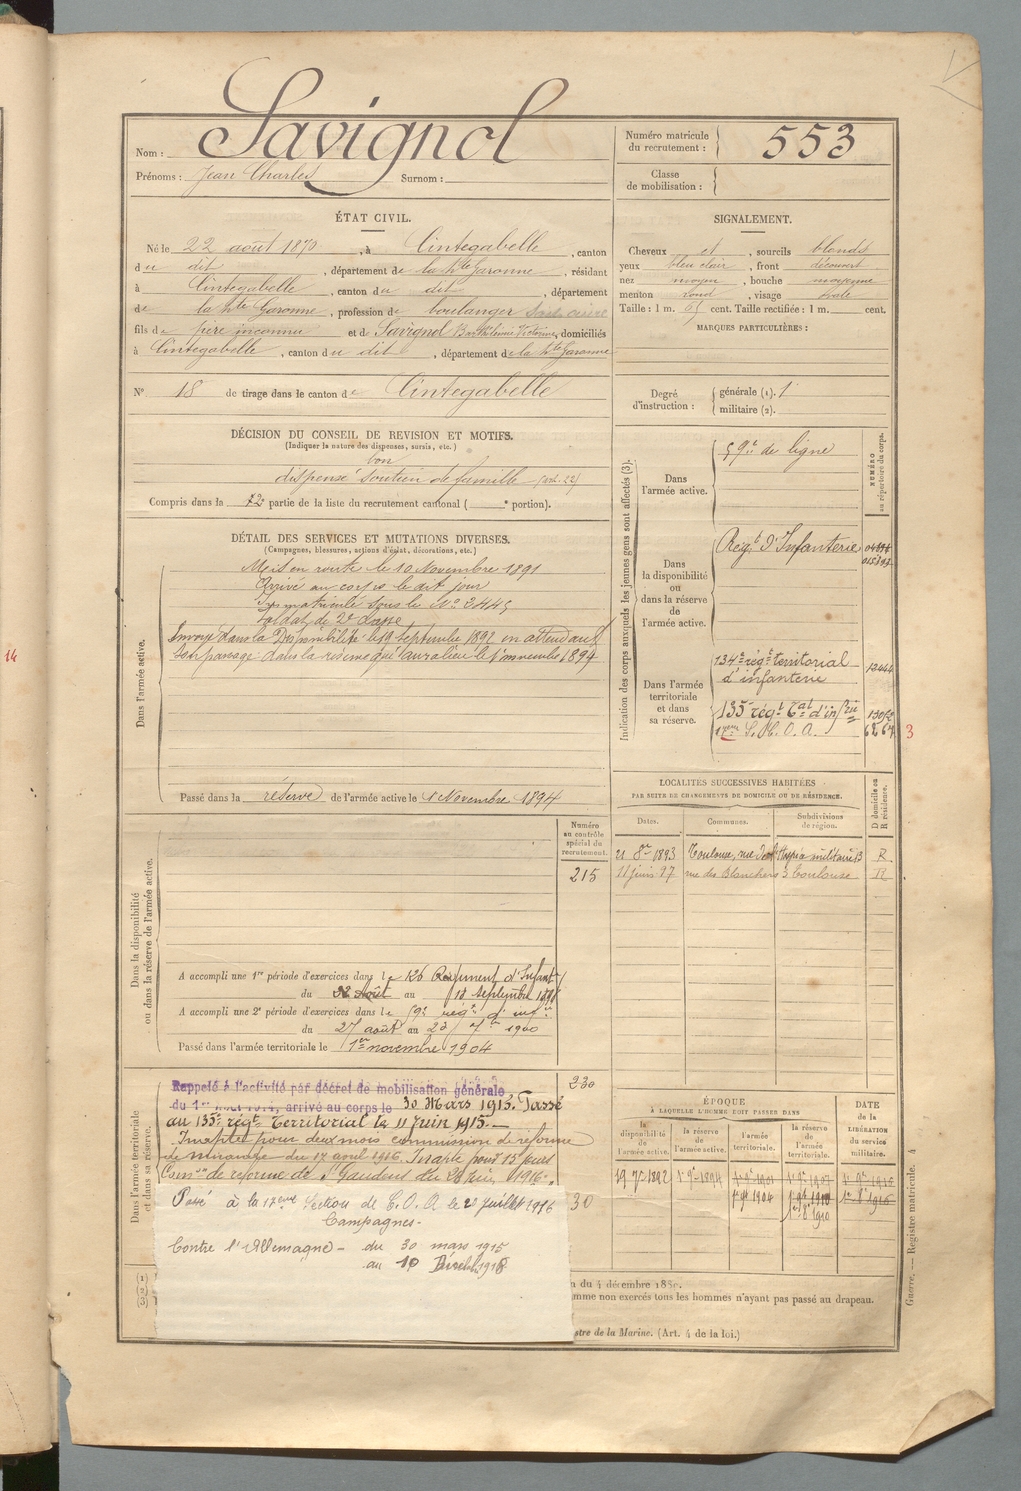 Nom : Savignol
Prénoms : Jean Charles Surnom :
Numéro matricule du recrutement : 553
Classe de mobilisation :
ÉTAT CIVIL.
Né le 22 août 1870, à Cintegabelle, canton
du dit, département de la hte Garonne, résidant
à Cintegabelle, canton du dit, département
de la hte Garonne, profession de boulanger
fils de père inconnu et de Savignol Barthélemie Victorine, domiciliés
à Cintegabelle, canton du dit, département de la hte Garonne
No 18 de tirage dans le canton de Cintegabelle
SIGNALEMENT.
Cheveux et, sourcils blonds
yeux bleu clair, front découvert
nez moyen, bouche moyenne
menton rond, visage ovale
Taille : 1 m. cent. Taille rectifiée : 1 m. cent.
MARQUES PARTICULIÈRES :
Degré d'instruction : générale (1). 1
militaire (2).
DÉCISION DU CONSEIL DE REVISION ET MOTIFS.
(Indiquer la nature des dispenses, sursis, etc.)
bon
dispensé soutien de famille (art. 22)
Compris dans la 2e partie de la liste du recrutement cantonal ( e portion).
DÉTAIL DES SERVICES ET MUTATIONS DIVERSES.
(Campagnes, blessures, actions d'éclat, décorations, etc.)
Dans l'armée active.
Mis en route le 10 Novembre 1891
Arrivé au corps le dit jour
Immatriculé sous le No 3445
Soldat de 2e classe
Envoyé dans la Disponibilité le 19 septembre 1892 en attendant
son passage dans la réserve qui aura lieu le 1er novembre 1894
Passé dans la réserve de l'armée active le 1 Novembre 1894
Indication des corps auxquels les jeunes gens sont affectés (3).
NUMÉRO au répertoire du corps.
Dans l'armée active.
59e de ligne
Dans la disponibilité ou dans la réserve de l'armée active.
Régt d'Infanterie
Dans l'armée territoriale et dans sa réserve.
134e régt territorial
d'infanterie
12444
135e régt Tal d'infrie
17eme S. C. O. A.
3
14
LOCALITÉS SUCCESSIVES HABITÉES
PAR SUITE DE CHANGEMENTS DE DOMICILE OU DE RÉSIDENCE.
D domicile ou R résidence.
Dates. Communes. Subdivisions de région.
21 8re 1893 Toulouse, rue de militaire 13 R
11 juin 97 rue des Blanchers 3 Toulouse R
Numéro au contrôle spécial du recrutement.
215
Dans la disponibilité ou dans la réserve de l'armée active.
A accompli une 1re période d'exercices dans le 126 Régiment d'Infant
du 22 Août au 18 Septembre
A accompli une 2e période d'exercices dans le 59e régt d'infie
du 27 août au 23 7re 1900
Passé dans l'armée territoriale le 1er novembre 1904
Dans l'armée territoriale et dans sa réserve.
230
Rappelé à l'activité par décret de mobilisation générale
du 1er Août 1914, arrivé au corps le 30 Mars 1915. Passé
au 135e régt Territorial le 11 Juin 1915.
Inapte pour deux mois commission de réforme
de du 17 avril 1916. Inapte pour 15 jours
Comon de réforme de St Gaudens du 28 juin 1916.
Passé à la 17eme Section de C.O.A le 21 Juillet 1916 30
Campagnes
Contre l'Allemagne - du 30 mars 1915
au 10 1918
ÉPOQUE
À LAQUELLE L'HOMME DOIT PASSER DANS
la disponibilité de l'armée active.
la réserve de l'armée active.
l'armée territoriale.
la réserve de l'armée territoriale.
DATE de la LIBÉRATION du service militaire.
19 7re 1892 1er 9re 1894 1er 9re 1904
(1)
(2)
(3)
n du 4 décembre
omme non exercés tous les hommes n'ayant pas passé au drapeau.
stre de la Marine. (Art. 4 de la loi.)
Guerre. — Registre matricule. 4